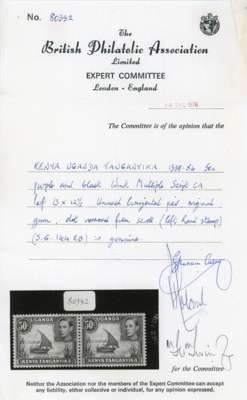 No. 80392
The
British Philatelic Association
Limited
EXPERT COMMITTEE
London - England
The Committee is of the opinion that the
KENYA UGANDA TANGANYIKA 1938-54 50c
purple and black Wmk Multiple Script CA
Perf 13 x 12½ Unused horizontal pair original
gum - dot removed from scroll (left hand stamp)
(S.G. 144 eb) is genuine.
80392
50 50
KENYA UGANDA TANGANYIKA KENYA UGANDA TANGANYIKA
for the Committee
Neither the Association nor the members of the Expert Committee can accept
any liability, either collective or individual, for any opinion expressed.